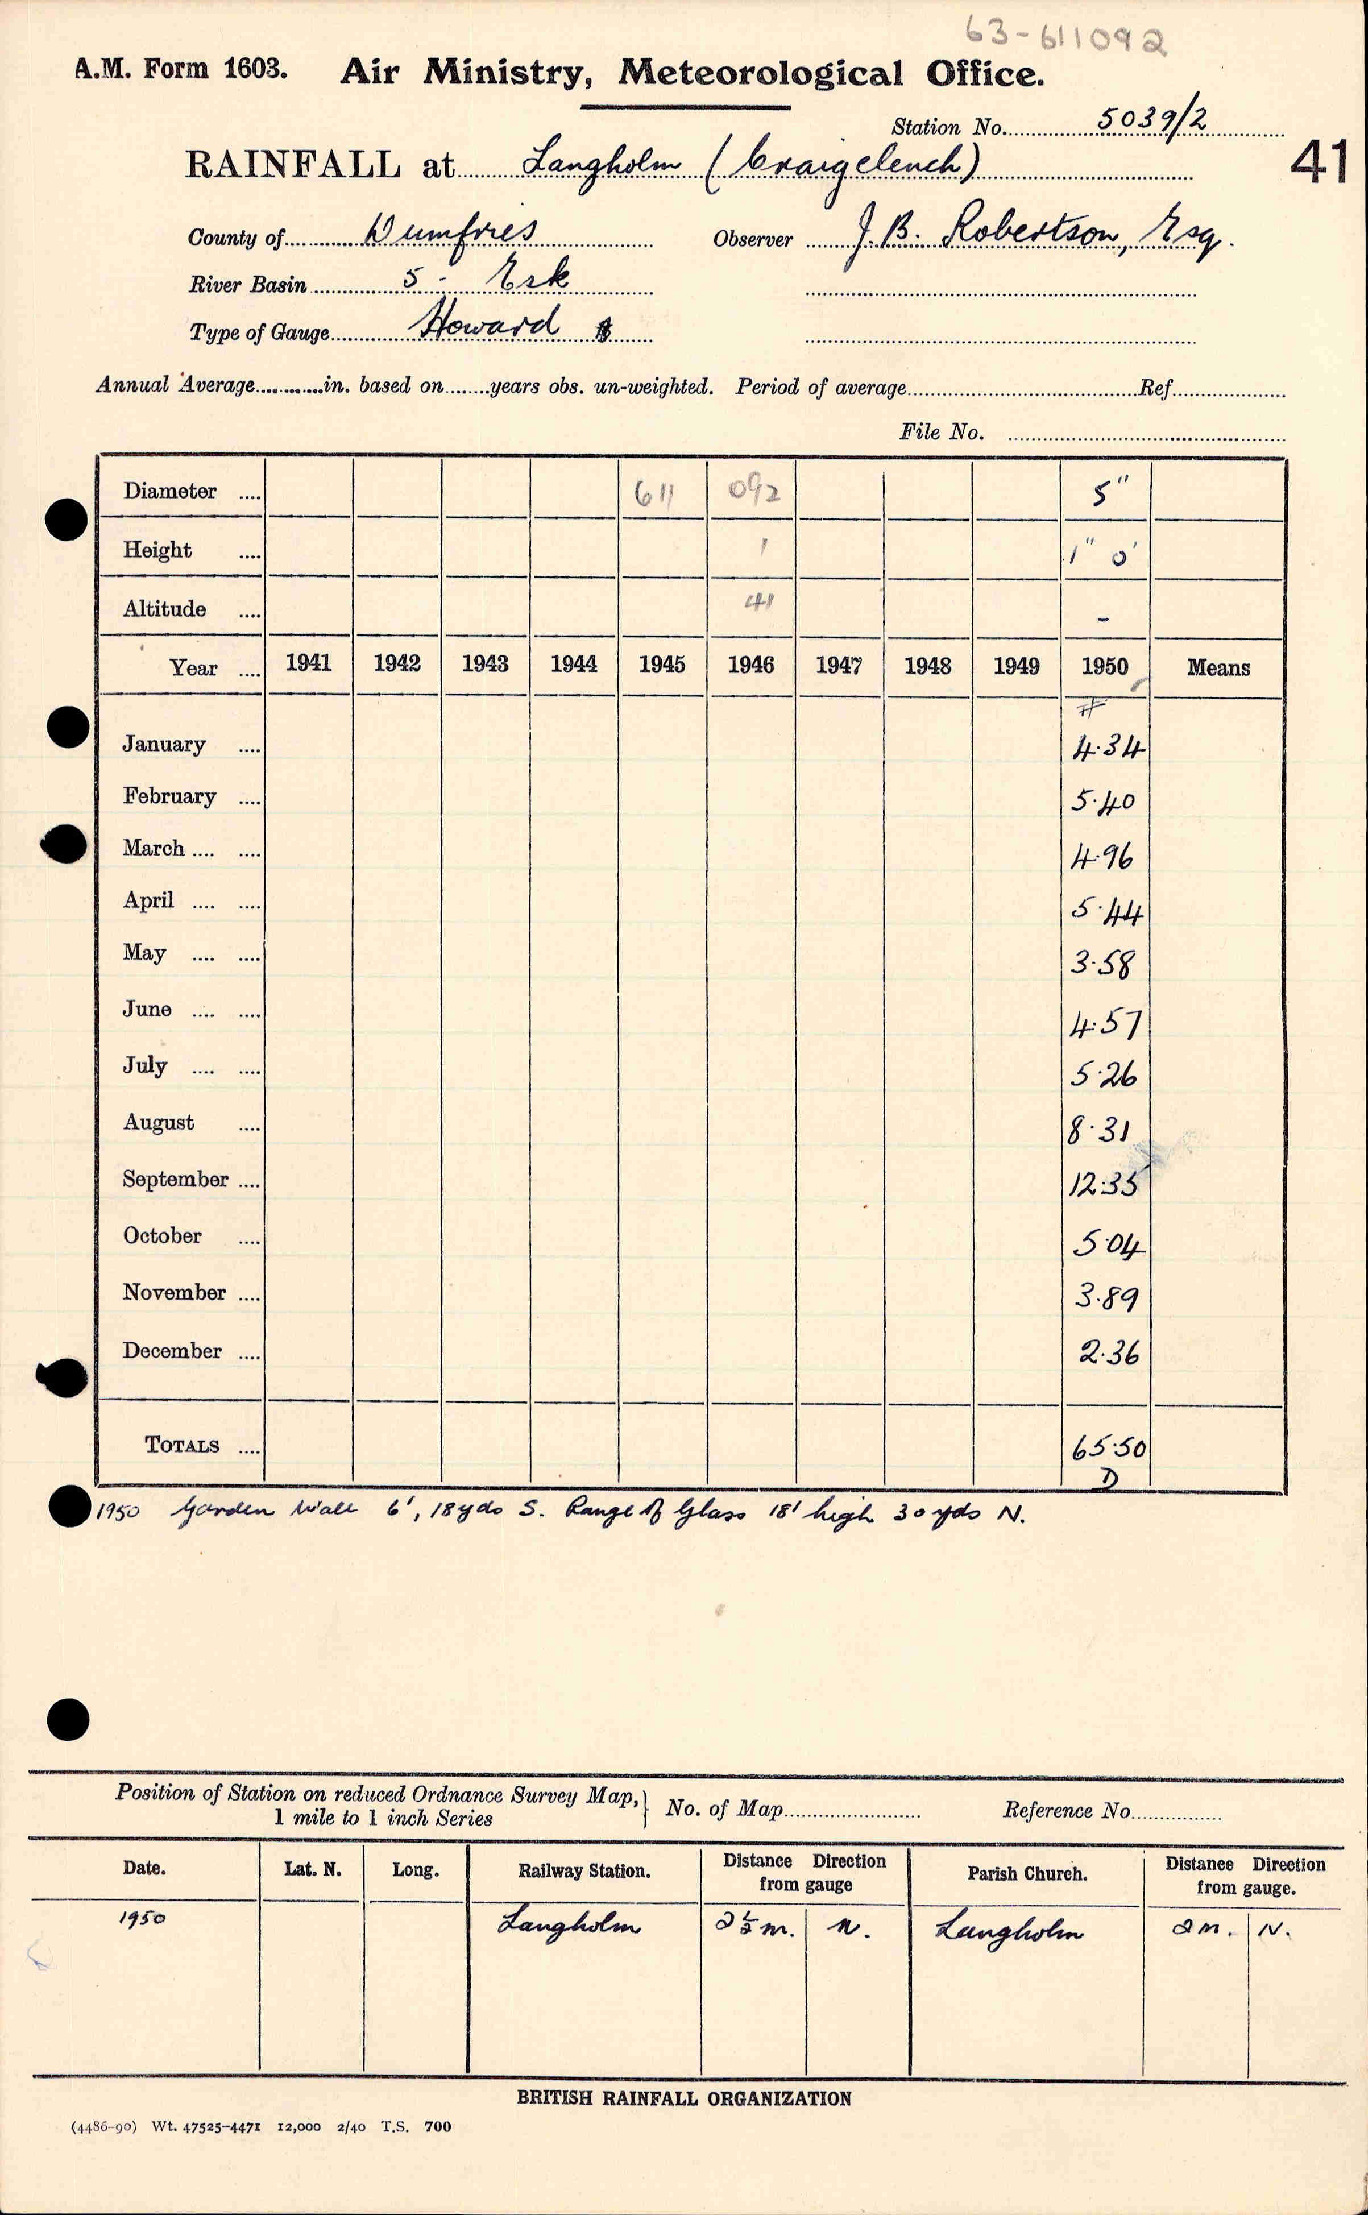 63-611092
A.M. Form 1603. Air Ministry, Meteorological Office.
Station No. 5039/2
RAINFALL at Langholm (Craigcleuch)
41
County of Dumfries Observer J. B. Robertson, Esq.
River Basin 5 - Esk
Type of Gauge Howard
Annual Average in. based on years obs. un-weighted. Period of average Ref.
File No.
Diameter .... 611 092 5"
Height .... 1 1" 0'
Altitude .... 41 -
Year .... 1941 1942 1943 1944 1945 1946 1947 1948 1949 1950 Means
#
January .... 4.34
February .... 5.40
March .... .... 4.96
April .... .... 5.44
May .... .... 3.58
June .... .... 4.57
July .... .... 5.26
August .... 8.31
September .... 12.35
October .... 5.04
November .... 3.89
December .... 2.36
TOTALS .... 65.50
D
1950 Garden Wall 6', 18 yds S. Range of Glass 18' high 30 yds N.
Position of Station on reduced Ordnance Survey Map, 1 mile to 1 inch Series } No. of Map Reference No.
Date. Lat. N. Long. Railway Station. Distance Direction from gauge Parish Church. Distance Direction from gauge.
1950 Langholm 2½ m. N. Langholm 2 m. N.
BRITISH RAINFALL ORGANIZATION
(4486-90) Wt. 47525-4471 12,000 2/40 T.S. 700